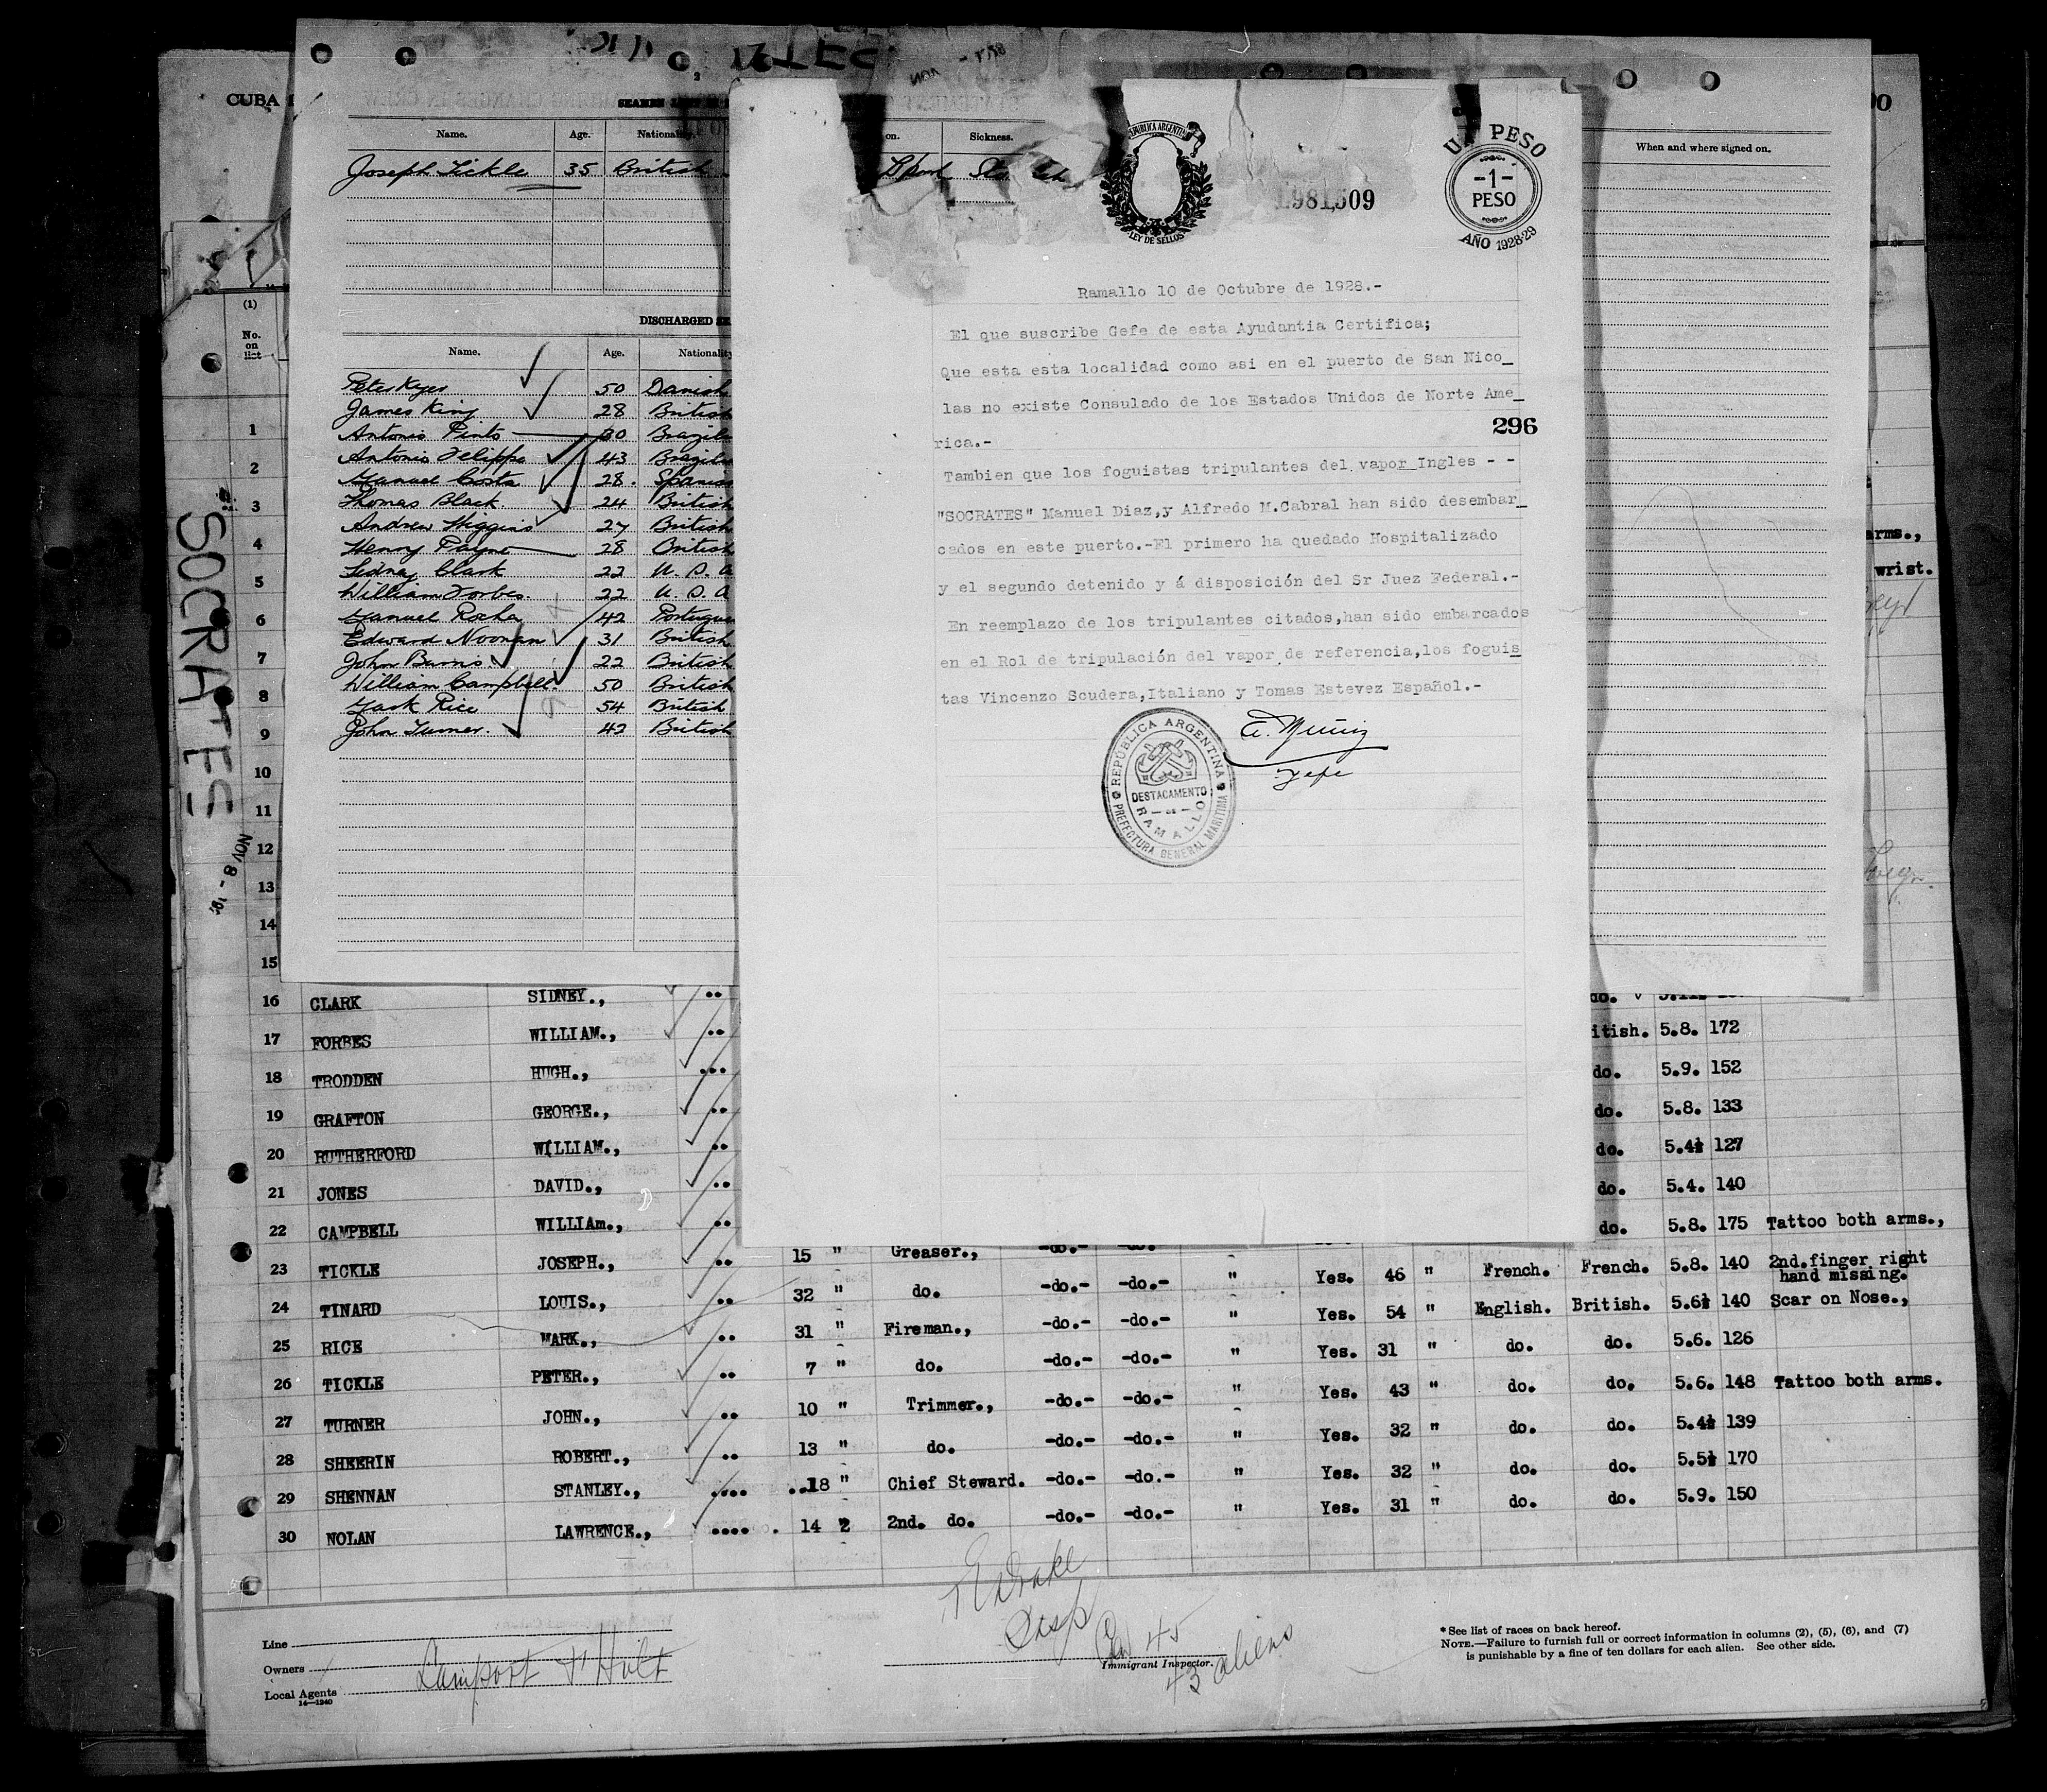 CUBA
SEAMEN
Name. Age. Nationality. Sickness.
Joseph Tickle 35 British
When and where signed on.
DISCHARGED
Name. Age. Nationality
Peter Keyes 50 Danish
James King 28 British
Antonio Pinto 30 Brazil
Antonio Felippe 43 Brazil
Manuel Costa 28. Spanis
Thomas Black. 24 British
Andrew Higgins 27 British
Henry Payne 28 British
Sidney Clark 22 U. S. A
William Forbes. 22 U. S. A
Manuel Rocha 42 Portugue
Edward Noonan 31 British
John Burns 22 British
William Campbell. 50 British
Mark Rice 54 British
John Turner. 42 British
SOCRATES
NOV 8 -
REPUBLICA ARGENTINA
LEY DE SELLOS
1981,509
UN PESO
-1-
PESO
AÑO 1928-29
Ramallo 10 de Octubre de 1928.-
El que suscribe Gefe de esta Ayudantia Certifica;
Que esta esta localidad como asi en el puerto de San Nico_
las no existe Consulado de los Estados Unidos de Norte Ame_
296
rica.-
Tambien que los foguistas tripulantes del vapor Ingles - -
"SOCRATES" Manuel Diaz,y Alfredo M.Cabral han sido desembar_
cados en este puerto.-El primero ha quedado Hospitalizado
y el segundo detenido y á disposición del Sr Juez Federal.-
En reemplazo de los tripulantes citados,han sido embarcados
en el Rol de tripulación del vapor de referencia,los foguis
tas Vincenzo Scudera,Italiano y Tomas Estevez Español.-
A. Muñiz
Jefe
REPÚBLICA ARGENTINA
DESTACAMENTO
RAMALLO
PREFECTURA GENERAL MARITIMA
(1)
No.
on
list
1
2
3
4
5
6
7
8
9
10
11
12
13
14
15
arms.,
wrist.
16 CLARK SIDNEY., do.
17 FORBES WILLIAM., itish. 5.8. 172
18 TRODDEN HUGH., do. 5.9. 152
19 GRAFTON GEORGE., do. 5.8. 133
20 RUTHERFORD WILLIAM., do. 5.4½ 127
21 JONES DAVID., do. 5.4. 140
22 CAMPBELL WILLIAm., do. 5.8. 175 Tattoo both arms.,
23 TICKLE JOSEPH., 15 " Greaser., -do.- -do.- " Yes. 46 " French. French. 5.8. 140 2nd.finger right
hand missing.
24 TINARD LOUIS., 32 " do. -do.- -do.- " Yes. 54 " English. British. 5.6½ 140 Scar on Nose.,
25 RICE MARK., 31 " Fireman., -do.- -do.- " Yes. 31 " do. do. 5.6. 126
26 TICKLE PETER., 7 " do. -do.- -do.- " Yes. 43 " do. do. 5.6. 148 Tattoo both arms.
27 TURNER JOHN., 10 " Trimmer., -do.- -do.- " Yes. 32 " do. do. 5.4½ 139
28 SHEERIN ROBERT., 13 " do. -do.- -do.- " Yes. 32 " do. do. 5.5½ 170
29 SHENNAN STANLEY., 18 " Chief Steward. -do.- -do.- " Yes. 31 " do. do. 5.9. 150
30 NOLAN LAWRENCE., 14 2 2nd. do. -do.- -do.- "
Line
Owners Lamport & Holt
Local Agents
14—1240
45
43 aliens
Immigrant Inspector.
* See list of races on back hereof.
NOTE.—Failure to furnish full or correct information in columns (2), (5), (6), and (7)
is punishable by a fine of ten dollars for each alien. See other side.